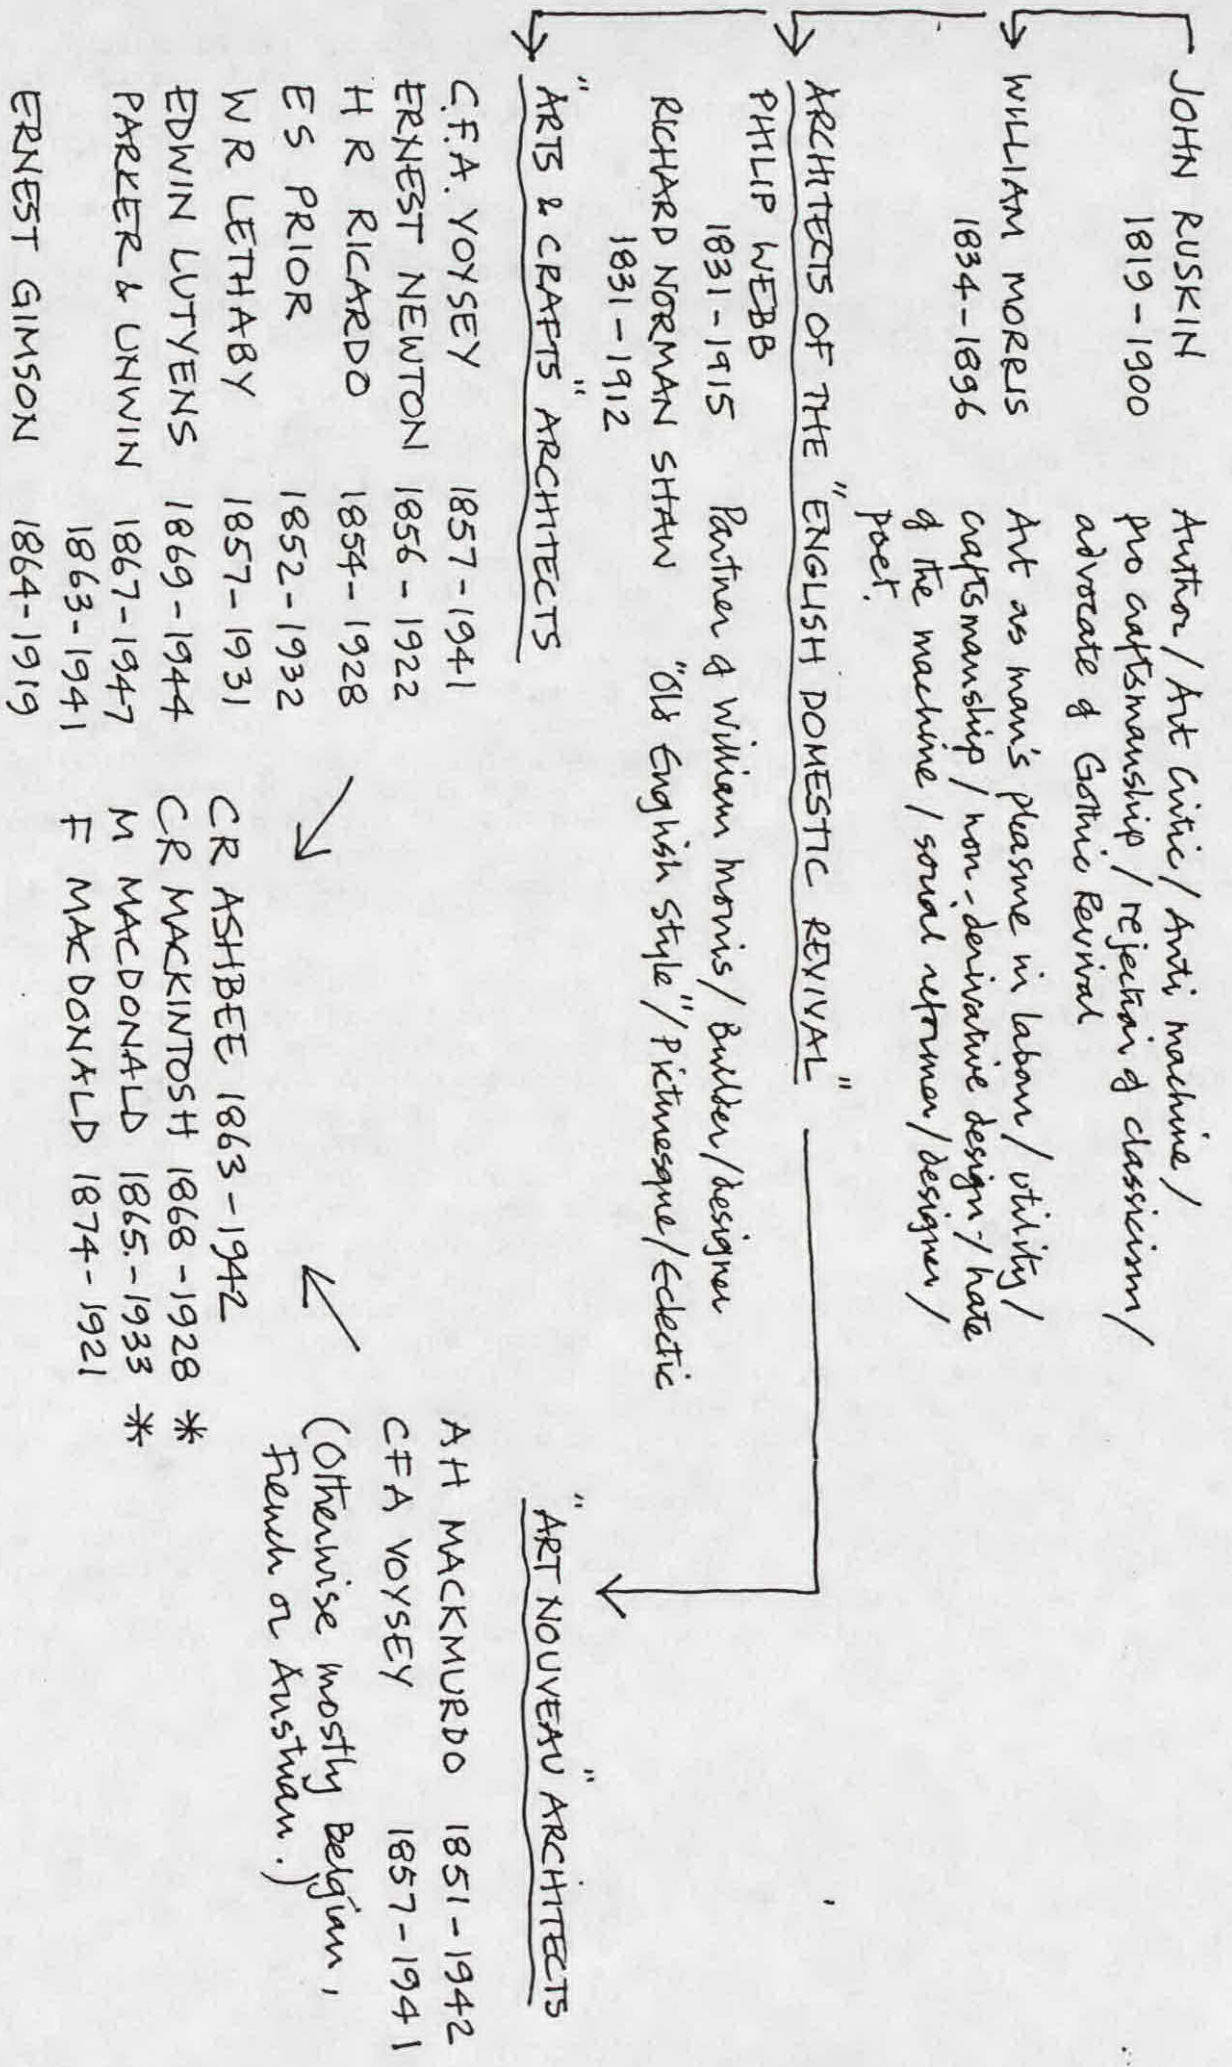 JOHN RUSKIN
1819 - 1900
Author / Art Critic / Anti machine /
pro craftsmanship / rejection of classicism /
advocate of Gothic Revival
WILLIAM MORRIS
1834 - 1896
Art as man's pleasure in labour / utility /
craftsmanship / non-derivative design / hate
of the machine / social reformer / designer /
poet.
ARCHITECTS OF THE "ENGLISH DOMESTIC REVIVAL"
PHILIP WEBB
1831 - 1915
Partner of William Morris / Builder / designer
RICHARD NORMAN SHAW
1831 - 1912
"Old English Style" / Picturesque / Eclectic
"ARTS & CRAFTS" ARCHITECTS
C.F.A. VOYSEY 1857 - 1941
ERNEST NEWTON 1856 - 1922
H R RICARDO 1854 - 1928
E S PRIOR 1852 - 1932
W R LETHABY 1857 - 1931
EDWIN LUTYENS 1869 - 1944
PARKER & UNWIN 1867 - 1947
1863 - 1941
ERNEST GIMSON 1864 - 1919
CR ASHBEE 1863 - 1942
CR MACKINTOSH 1868 - 1928 *
M MACDONALD 1865. - 1933 *
F MACDONALD 1874 - 1921
"ART NOUVEAU" ARCHITECTS
A H MACKMURDO 1851 - 1942
CFA VOYSEY 1857 - 1941
(Otherwise mostly Belgian,
French or Austrian.)